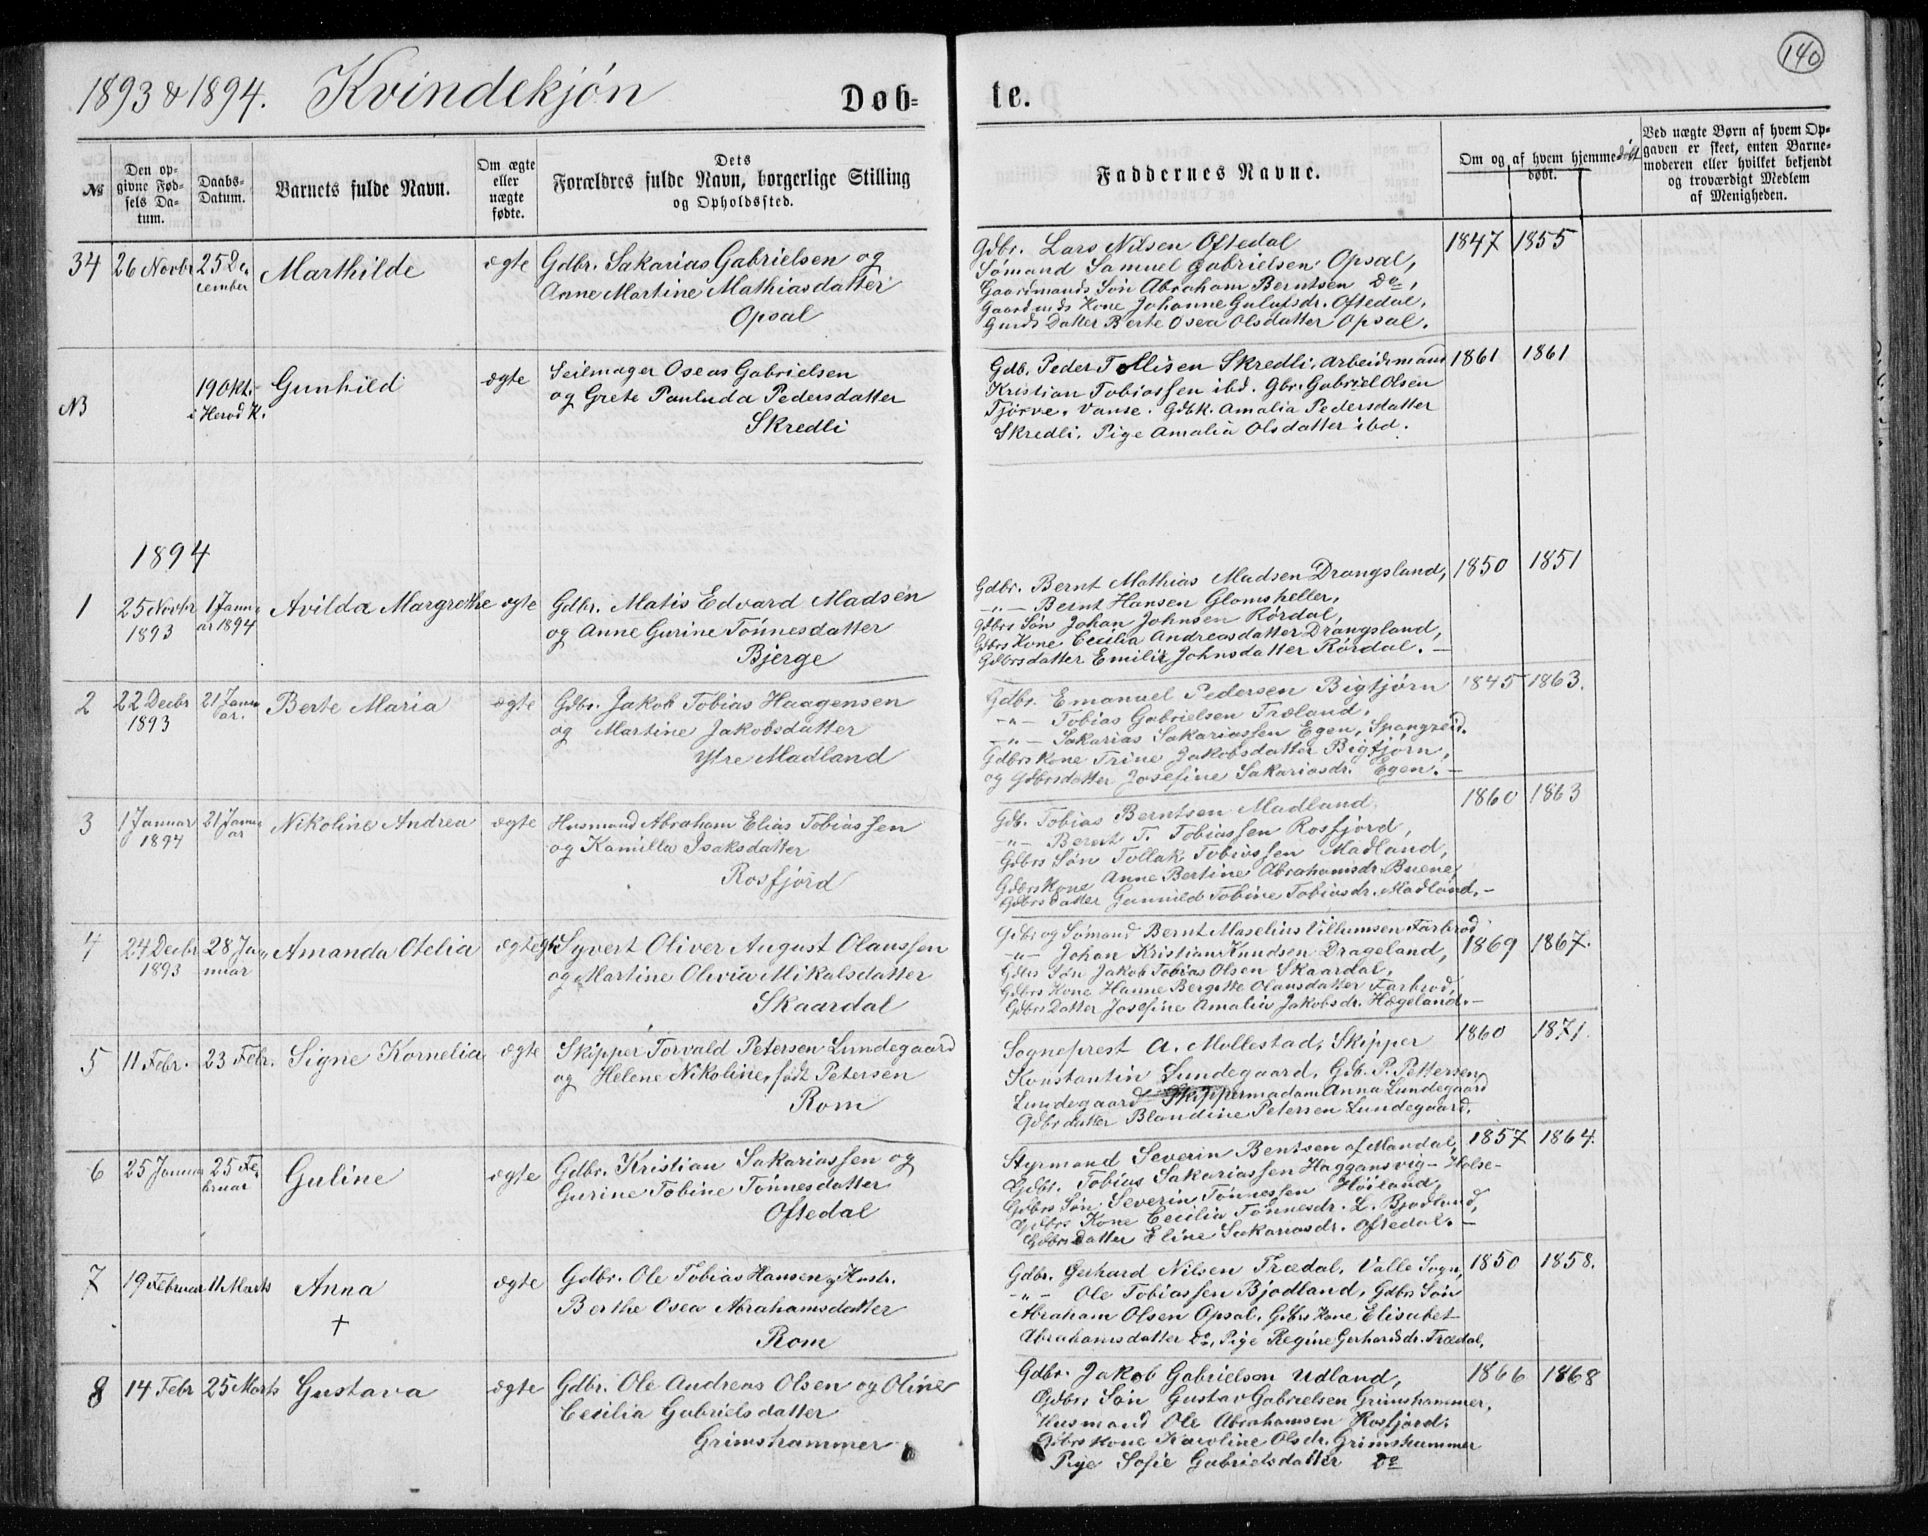 140
1893 & 1894. Kvindekjøn Døb- te.
№
Den op-
givne Fød-
sels Da-
tum.
Daabs-
Datum.
Barnets fulde Navn.
Om ægte
eller
uægte
fødte.
Dets
Forældres fulde Navn, borgerlige Stilling
og Opholdssted.
Faddernes Navne.
Om og af hvem hjemmedøbt
døbt.
Ved uægte Børn af hvem Op-
gaven er skeet, enten Barne-
moderen eller hvilket bekjendt
og troværdigt Medlem
af Menigheden.
34 26 Novbr 25 De-
cember
Marthilde
ægte
Gdbr. Sakarias Gabrielsen og
Anne Martine Mathiasdatter
Opsal
Gdbr. Lars Nilsen Oftedal
Sømand Samuel Gabrielsen Opsal,
Gaardmands Søn Abraham Berntsen Do,
Gaardmds Kone Johanne Gulufsdr. Oftedal,
Gmds Datter Berte Osea Olsdatter Opsal.
1847 1855
NB
19 Okt.
i Herod K.
Gunhild
ægte
Seilmager Oseas Gabrielsen
og Grete Pauluda Pedersdatter
Skredli
Gdb. Peder Tollisen Skredli, Arbeidsmand
Kristian Tobiassen ibd. Gbr. Gabriel Olsen
Tjörve, Vanse. Gdbk. Amalia Pedersdatter
Skredli, Pige Amalia Olsdatter ibd.
1861 1861
1894
1 25 Novbr
1893
1 Janu-
ar 1894
Avilda Margrethe
ægte
Gdbr. Matis Edvard Madsen
og Anne Gurine Tönnesdatter
Bjerge
Gdbr. Bernt Mathias Madsen Drangsland,
-"- Bernt Hansen Glomsheller,
Gdbrs Søn Johan Johnsen Rördal,
Gdbrs Kone Cecilia Andreasdatter Drangsland,
Gdbrsdatter Emilie Johnsdatter Rördal.-
1850 1851
2 22 Decbr
1893
21 Janu-
ar.
Berte Maria
ægte
Gdbr. Jakob Tobias Haagensen
og Martine Jakobsdatter
Ytre Madland
Gdbr. Emanuel Pedersen Bigtjörn
-"- Tobias Gabrielsen Træland,
-"- Sakarias Sakariassen Egen, Spangreid.
Gdbrs Kone Trine Jakobsdatter Bigtjörn,
og Gdbrsdatter Josefine Sakariasdr. Egen.-
1845 1863.
3 1 Januar
1894
21 Janu-
ar
Nikoline Andrea
ægte
Husmand Abraham Elias Tobiassen
og Kamilla Isaksdatter
Rosfjord
Gdb. Tobias Berntsen Madland,
-"- Berent T. Tobiassen Rosfjord,
Gdbrs Søn Tollak Tobiassen Madland,
Gdbrs Kone Anne Bertine Abrahamsdr. Buene
Gdbrs datter Gunnild Tobine Tobiasdr. Madland.-
1860 1863
4 24 Decbr
1893
28 Ja-
nuar
Amanda Otelia
ægte
Syvert Oliver August Olaussen
og Martine Olivia Mikalsdatter
Skaardal
Gdbr og Sømand Bernt Maselius Villumsen Farbrod
-"- Johan Kristian Knudsen Drageland,
Gdbrs Søn Jakob Tobias Olsen Skaardal,
Gdbrs Kone Hanne Bergitte Olausdatter Farbrod,
Gdbrs Datter Josefine Amalia Jakobsdr. Hægeland.-
1869 1867.
5 11 Febr. 23 Febr.
Signe Kornelia
ægte
Skipper Torvald Petersen Lundegaard
og Helene Nikoline, født Petersen
Rom
Sogneprest A. Mollestad, Skipper
Konstantin Lundegaard, Gdb. P. Pettersen
Lundegaard Skippermadam Anna Lundegaard
Gdbrdatter Blandine Petersen Lundegaard.
1860 1871.
6 25 Januar 25 Fe-
bruar
Guline
ægte
Gdbr. Kristian Sakariassen og
Gurine Tobine Tönnesdatter
Oftedal
Styrmand Severin Bentsen af Mandal,
Gdbr. Tobias Sakariassen Haggansvig - Halse-
Gdbrs Søn Severin Tönnessen Höiland,
Gdbrs Kone Cecilia Tönnesdr. L. Bjodland,
Gdbrs datter Eline Sakariasdr. Oftedal.-
1857 1864.
7 19 Februar 11 Marts
Anna
+
ægte
Gdbr. Ole Tobias Hansen og Hustr.
Berthe Osea Abrahamsdatter
Rom
Gdbr. Gerhard Nilsen Trædal, Valle Sogn,
-"- Ole Tobiassen Bjodland, Gdbrs Søn
Abraham Olsen Opsal, Gdbrs Kone Elisabet
Abrahamsdatter Do, Pige Regine Gerhardsdr. Trædal,
1850 1858.
8 14 Febr 25 Marts
Gustava
ægte
Gdbr. Ole Andreas Olsen og Oline
Cecilia Gabrielsdatter
Grimshammer
Gdbr. Jakob Gabrielsen Udland,
Gdbrs Søn Gustav Gabrielsen Grimshammer,
Husmand Ole Abrahamsen Rosfjord,
Gdbrs Kone Karoline Olsdr. Grimshammer
Pige Sofie Gabrielsdatter Do
1866 1868